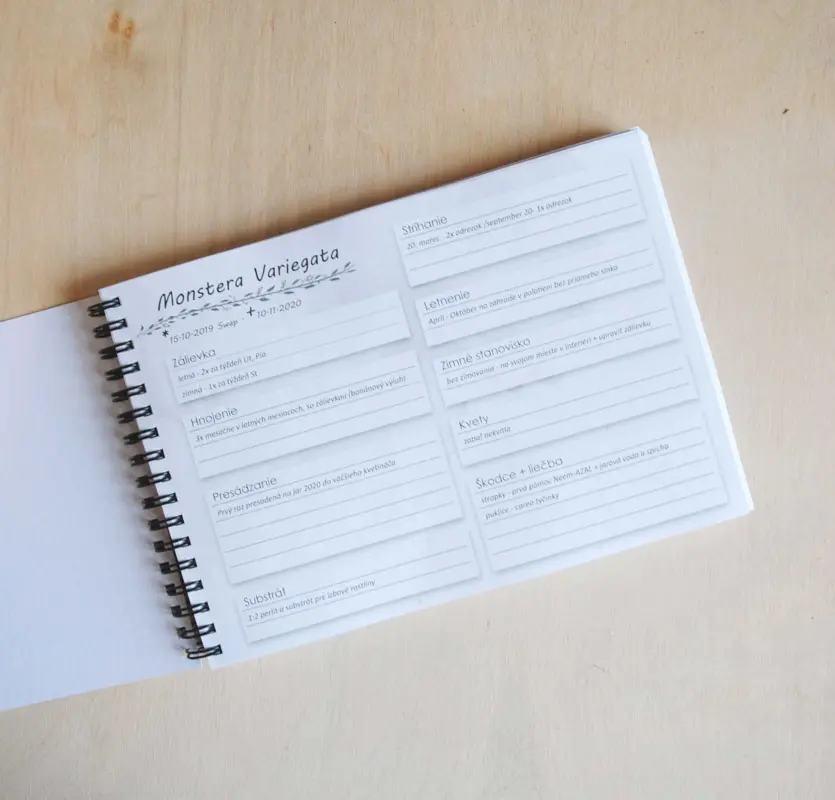 Monstera Variegata
* 15-10-2019 Swap . + 10-11-2020
Zálievka
letná - 2x za týždeň Ut, Pia
zimná - 1x za týždeň St
Hnojenie
3x mesačne v letných mesiacoch, so zálievkou (banánový výluh)
Presádzanie
Prvý raz presadená na jar 2020 do väčšieho kvetináča
Substrát
1:2 perlit a substrát pre izbové rastliny
Strihanie
20. marec - 2x odrezok /september 20- 1x odrezok
Letnenie
Apríl - Október na záhrade v polotieni bez priameho slnka
Zimné stanovisko
bez zimovania - na svojom mieste v interiéri + upraviť zálievku
Kvety
zatiaľ nekvitla
Škodce + liečba
strapky - prvá pomoc Neem-AZAL + jarová voda a sprcha
puklice - careo tyčinky